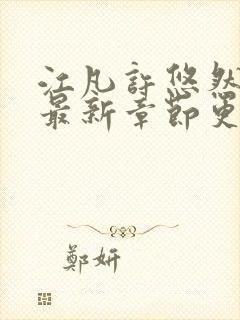 江凡許悠然
最新章節更
鄭妍